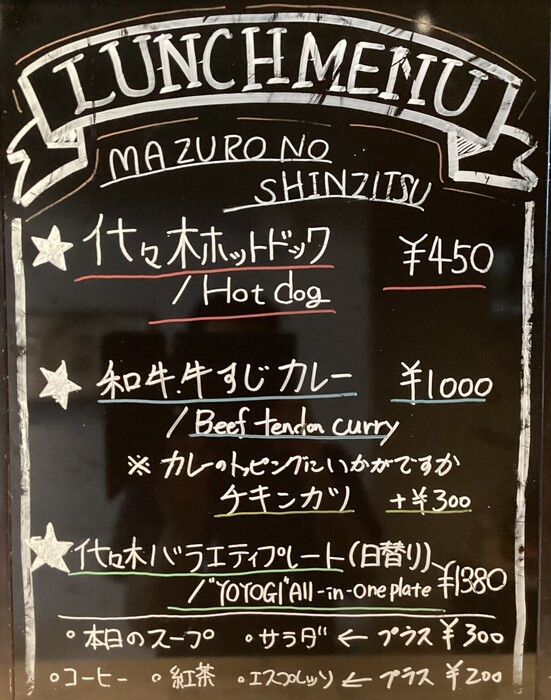 LUNCH MENU
MAZURO NO
SHINZITSU
代々木ホットドック ¥450
/Hot dog
和牛.牛すじカレー ¥1000
/Beef tendon curry
※カレーのトッピングにいかがですか
チキンカツ +¥300
代々木バラエティプレート(日替り)
/"YOYOGI"All-in-one plate ¥1380
◦本日のスープ ◦サラダ ← プラス ¥300
◦コーヒー ◦紅茶 ◦エスプレッソ ← プラス ¥200